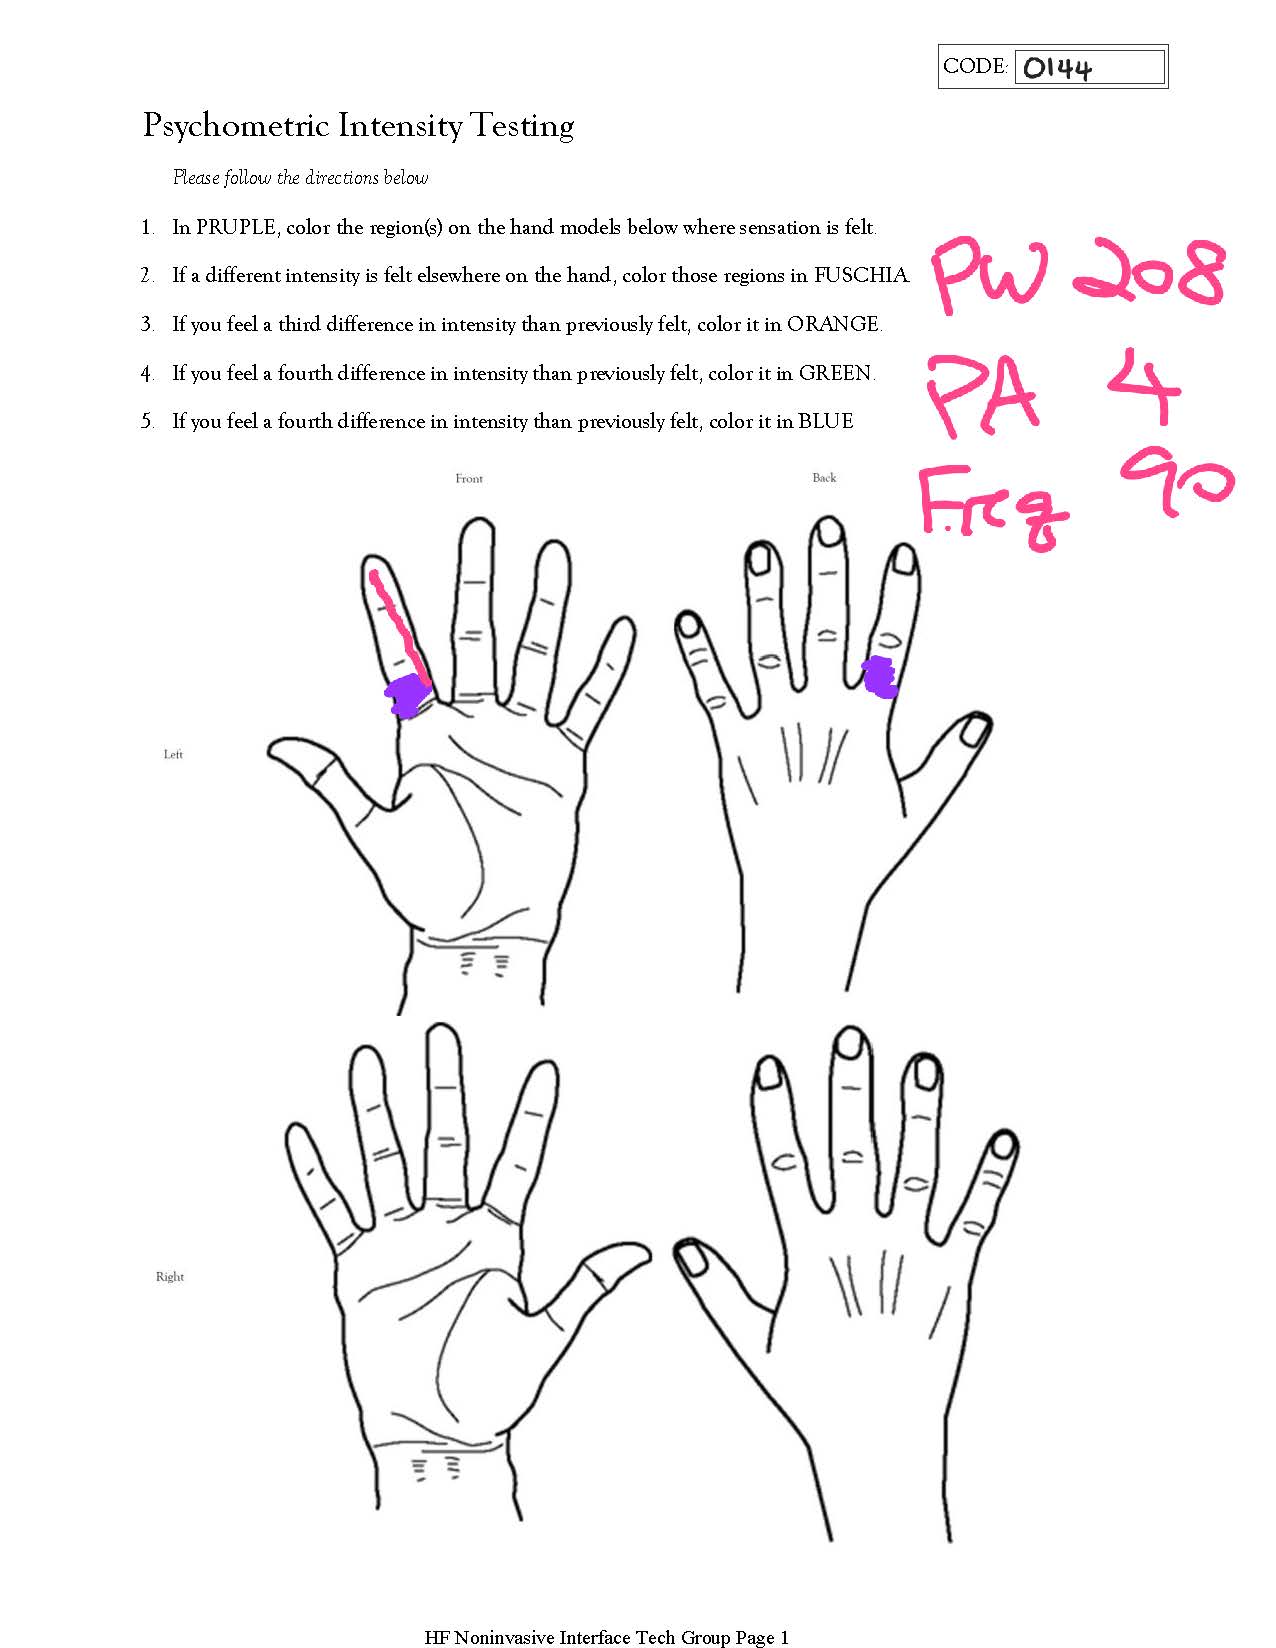 CODE: 0144
Psychometric Intensity Testing
Please follow the directions below
1. In PRUPLE, color the region(s) on the hand models below where sensation is felt.
2. If a different intensity is felt elsewhere on the hand, color those regions in FUSCHIA.
3. If you feel a third difference in intensity than previously felt, color it in ORANGE.
4. If you feel a fourth difference in intensity than previously felt, color it in GREEN.
5. If you feel a fourth difference in intensity than previously felt, color it in BLUE
PW 208
PA 4
Freq 90
Front
Back
Left
Right
HF Noninvasive Interface Tech Group Page 1